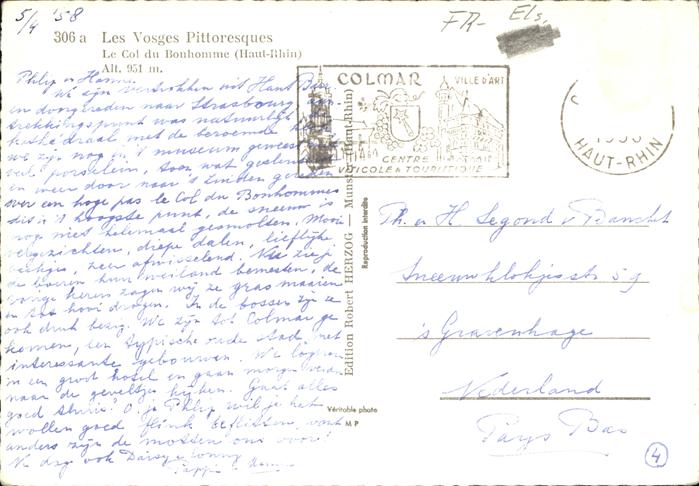 5/4 '58
FR- Els,
306 a Les Vosges Pittoresques
Le Col du Bonhomme (Haut-Rhin)
Alt. 951 m.
COLMAR
VILLE D'ART
CENTRE
VITICOLE & TOURISTIQUE
HAUT-RHIN
Phlip en Hanna.
We zijn vertrokken uit Haut
en doorgereden naar Strasbourg,
trekkingspunt was natuurlijk
kathedraal met de beroemde
we zijn nog in 't museum geweest
veel porselein, toen wat gesl
en weer door naar 't Zuiden
over een hoge pas le Col du Bonhomme
dit is 't hoogste punt, de sneeuw is
nog niet helemaal gesmolten. Mooi
vergezichten, diepe dalen, lieflijke
zeer afwisselend. Nu zie je
de boeren hun weiland bemesten, de
vorige keren zagen wij ze gras maaien
en tot hooi drogen. In de bossen zijn ze
ook druk bezig. We zijn tot Colmar ge
komen, een typische oude stad, met
interessante gebouwen. We logeren
in een groot hotel en gaan morgen verder
naar de geveltjes kijken. Gaat alles
goed thuis. O ja Phlip, wil je het
wollen goed flink want
anders zijn de motten ons voor!
Nu dag ook Daisy en Conny
Pappie en
Edition Robert HERZOG — Munster (Haut-Rhin)
Reproduction interdite
Véritable photo
M P
Ph. en H. Segond v. Banchet
Sneeuwklokjesstr 59
's Gravenhage
Nederland
Pays Bas
4